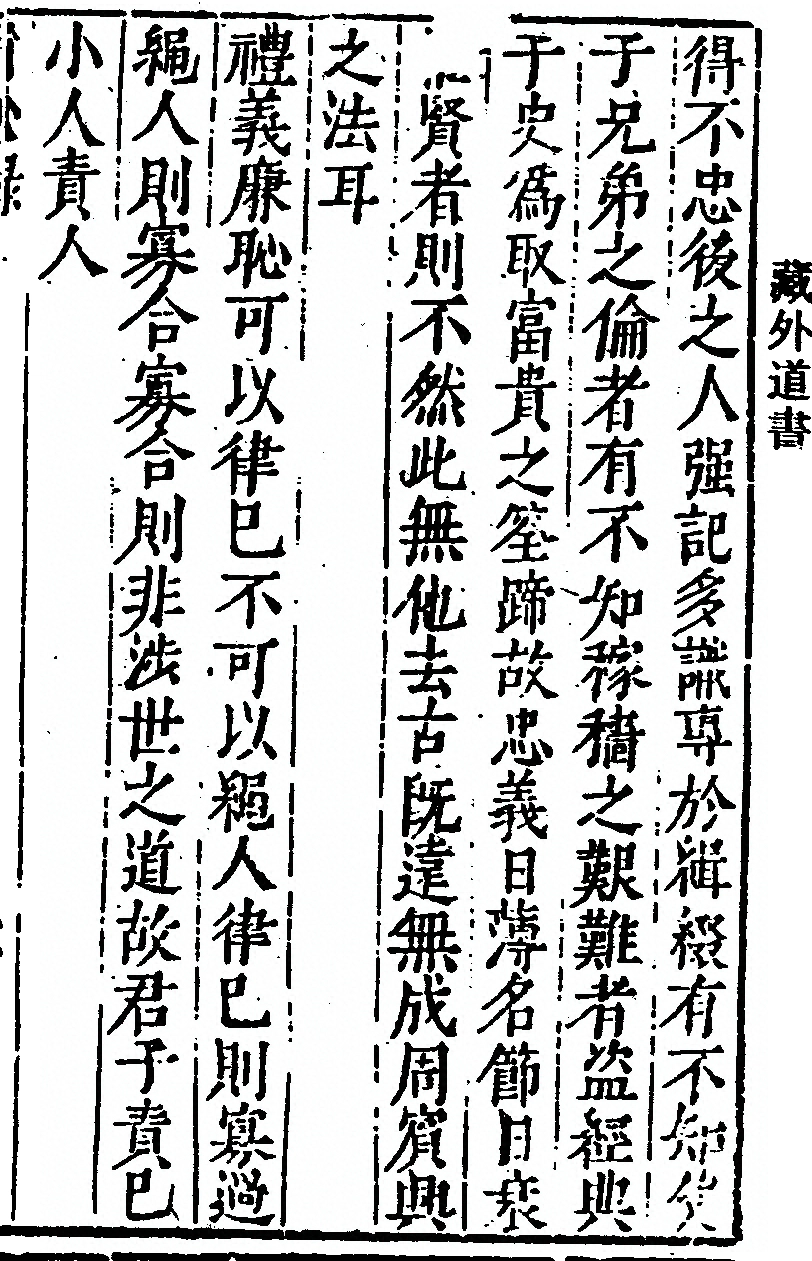 藏外道書
得不忠後之人强記多識専於緝綴有不知父
子兄弟之倫者有不知稼穡之艱難者盜經典
子史爲取富貴之筌蹄故忠義日薄名節日衰
賢者則不然此無他去古既遠無成周賓興
之法耳
禮義廉恥可以律已不可以繩人律已則寡過
繩人則寡合寡合則非涉世之道故君子責已
小人責人